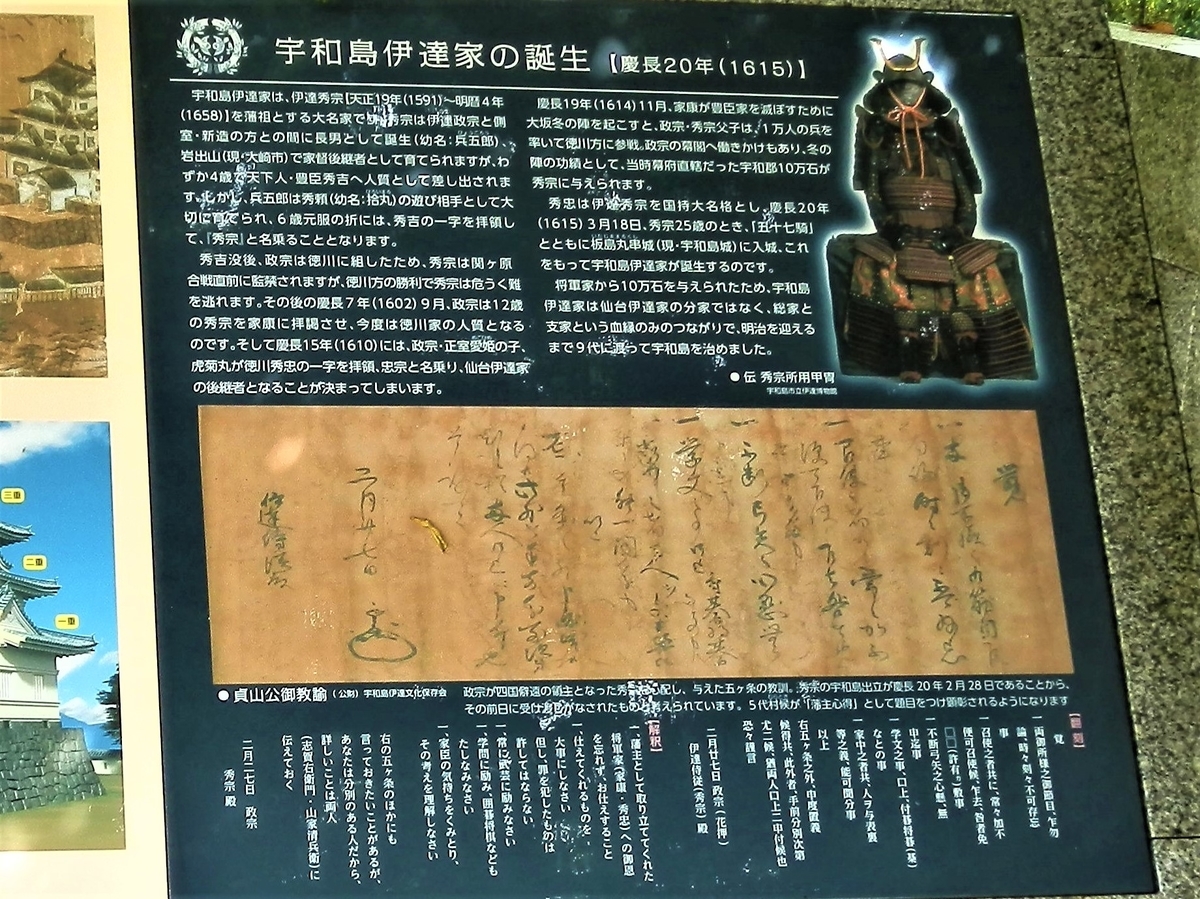 宇和島伊達家の誕生【慶長20年(1615)】
宇和島伊達家は、伊達秀宗【天正19年(1591)〜明暦4年
(1658)】を藩祖とする大名家です。秀宗は伊達政宗と側
室・新造の方との間に長男として誕生(幼名:兵五郎)、
岩出山(現・大崎市)で家督後継者として育てられますが、わ
ずか4歳で天下人・豊臣秀吉へ人質として差し出されま
す。しかし、兵五郎は秀頼(幼名:拾丸)の遊び相手として大
切に育てられ、6歳元服の折には、秀吉の一字を拝領し
て、「秀宗」と名乗ることとなります。
秀吉没後、政宗は徳川に組したため、秀宗は関ヶ原
合戦直前に監禁されますが、徳川方の勝利で秀宗は危うく難
を逃れます。その後の慶長7年(1602)9月、政宗は12歳
の秀宗を家康に拝謁させ、今度は徳川家の人質となる
のです。そして慶長15年(1610)には、政宗・正室愛姫の子、
虎菊丸が徳川秀忠の一字を拝領、忠宗と名乗り、仙台伊達家
の後継者となることが決まってしまいます。
慶長19年(1614)11月、家康が豊臣家を滅ぼすために
大坂冬の陣を起こすと、政宗・秀宗父子は、1万人の兵を
率いて徳川方に参戦。政宗の幕閣へ働きかけもあり、冬の
陣の功績として、当時幕府直轄だった宇和郡10万石が
秀宗に与えられます。
秀忠は伊達秀宗を国持大名格とし、慶長20年
(1615)3月18日、秀宗25歳のとき、「五十七騎」
とともに板島丸串城(現・宇和島城)に入城、これ
をもって宇和島伊達家が誕生するのです。
将軍家から10万石を与えられたため、宇和島
伊達家は仙台伊達家の分家ではなく、総家と
支家という血縁のみのつながりで、明治を迎える
まで9代に渡って宇和島を治めました。
● 伝 秀宗所用甲冑
宇和島市立伊達博物館
三重
二重
一重
覚
二月廿七日
● 貞山公御教諭(公財)宇和島伊達文化保存会
政宗が四国僻遠の領主となった秀宗を心配し、与えた五ヶ条の教訓。秀宗の宇和島出立が慶長20年2月28日であることから、
その前日に受け渡しがなされたものと考えられています。5代村候が「藩主心得」として題目をつけ顕彰されるようになります
【翻刻】
覚
一両御所様之御節目、乍勿
論、時々刻々不可存忘
事
一召使之者共に、常々加不
便可召使候、乍去、咎者免
□□(許有)敷事
一不断弓矢之心懸、無
申迄事
一学文之事、口上、付碁将碁(棊)
なとの事
一家中之者共、人ヲ与表裏
等之義、能可聞分事
以上
右五ヶ条之外、申度置義
候得共、此外者、手前分別次第
尤ニ候、猶両人口上ニ申付候也
恐々謹言
二月廿七日 政宗(花押)
伊達侍従(秀宗)殿
【解釈】
一、藩主として取り立ててくれた
将軍家(家康・秀忠)への御恩
を忘れず、お仕えすること
一、仕えてくれるものを、
大事にしなさい
但し、罪を犯したものは
許してはならない
一、常に武芸に励みなさい
一、学問に励み、囲碁将棋なども
たしなみなさい
一、家臣の気持ちをくみとり、
その考えを理解しなさい
右の五ヶ条のほかにも
言っておきたいことがあるが、
あなたは分別のある人だから、
詳しいことは両人
(志賀右衛門・山家清兵衛)に
伝えておく
二月二七日 政宗
秀宗殿